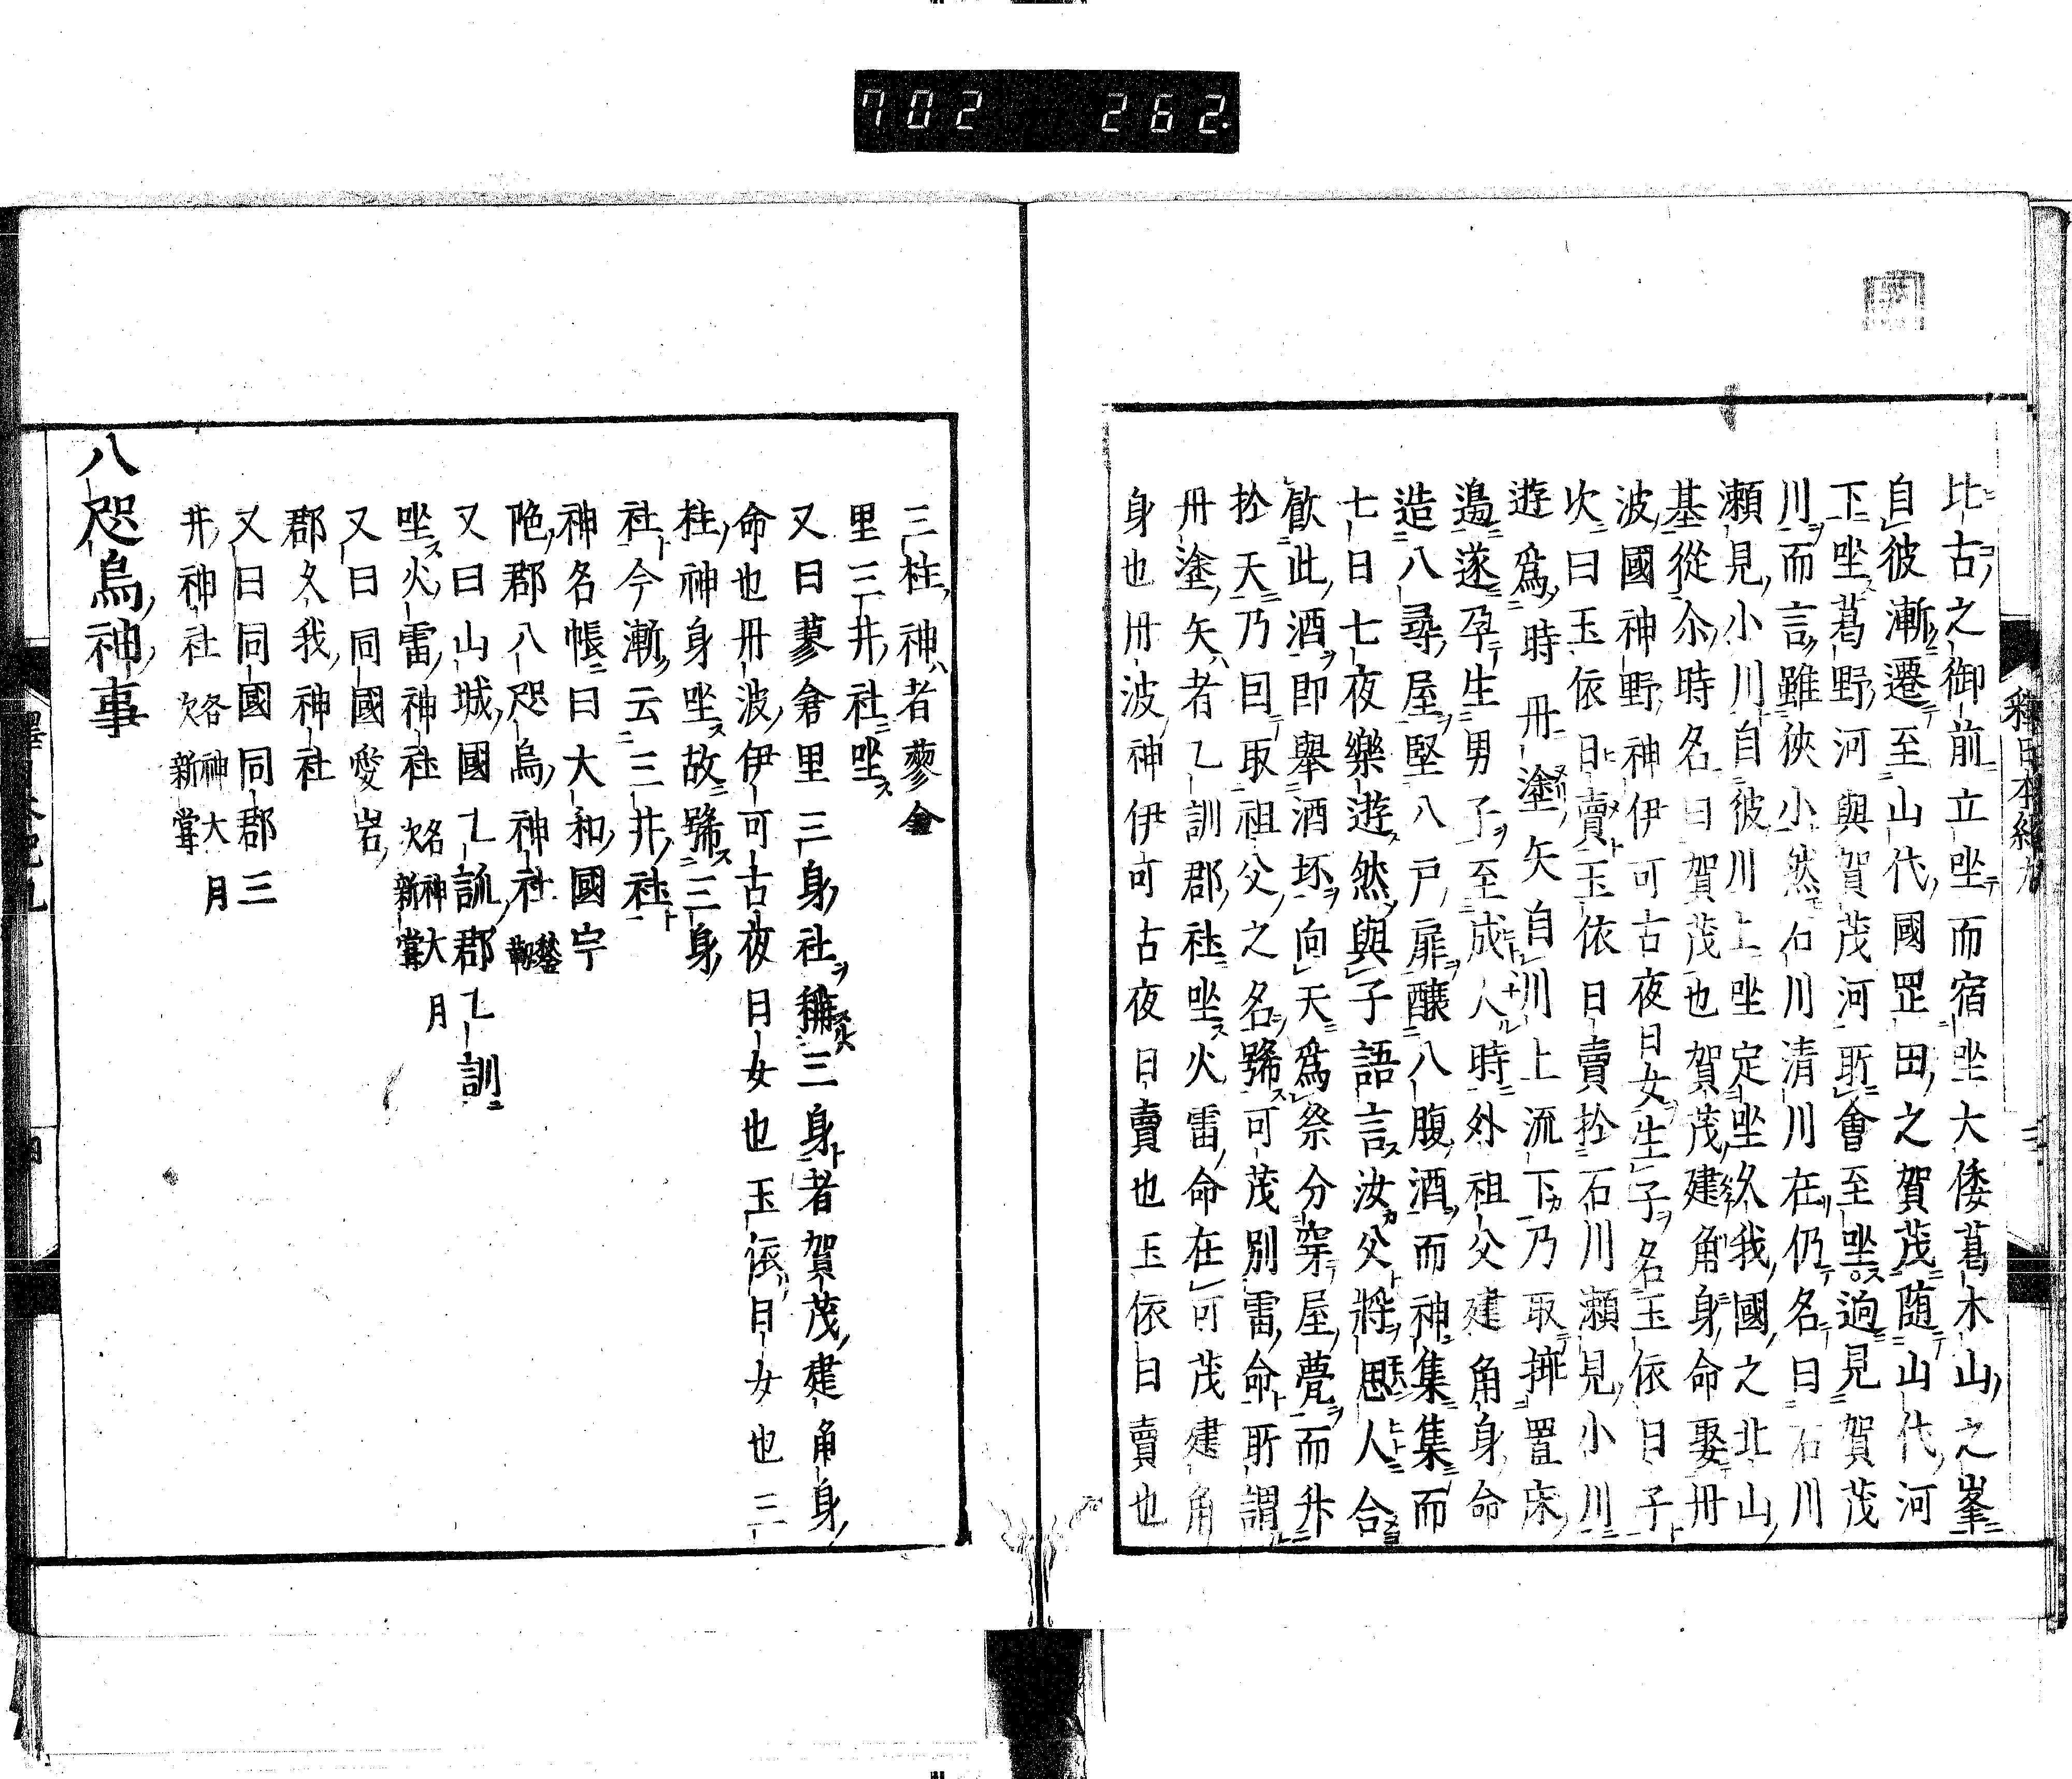 702 262
釋日本紀九
比古之御前立坐而宿坐大倭葛木山之峯
自彼漸遷至山代國罡田之賀茂隨山代河
下坐葛野河與賀茂河所會至坐迥見賀茂
川而言雖狹小然石川清川在仍名曰石川
瀬見小川自彼川上坐定坐久我國之北山
基從尒時名曰賀茂也賀茂建角身命娶丹
波國神野神伊可古夜日女生子名玉依日子
次曰玉依日賣玉依日賣於石川瀬見小川
遊爲時丹塗矢自川上流下乃取揷置床
邊遂孕生男子至成人時外祖父建角身命
造八尋屋堅八戸扉釀八腹酒而神集集而
七日七夜樂遊然與子語言汝父將思人令
飮此酒即擧酒坏向天爲祭分穿屋甍而升
於天乃因取祖父之名號可茂別雷命所謂
丹塗矢者乙訓郡社坐火雷命在可茂建角
身也丹波神伊可古夜日賣也玉依日賣也
三柱神者蓼倉
里三井社坐
又曰蓼倉里三身社稱三身者賀茂建角身
命也丹波伊可古夜日女也玉依日女也三
柱神身坐故號三身
社今漸云三井社
神名帳曰大和國宇
陁郡八咫烏神社鍬靫
又曰山城國乙訓郡乙訓
坐火雷神社名神大月次新嘗
又曰同國愛宕
郡久我神社
又曰同國同郡三
井神社名神大月次新嘗
八咫烏神事